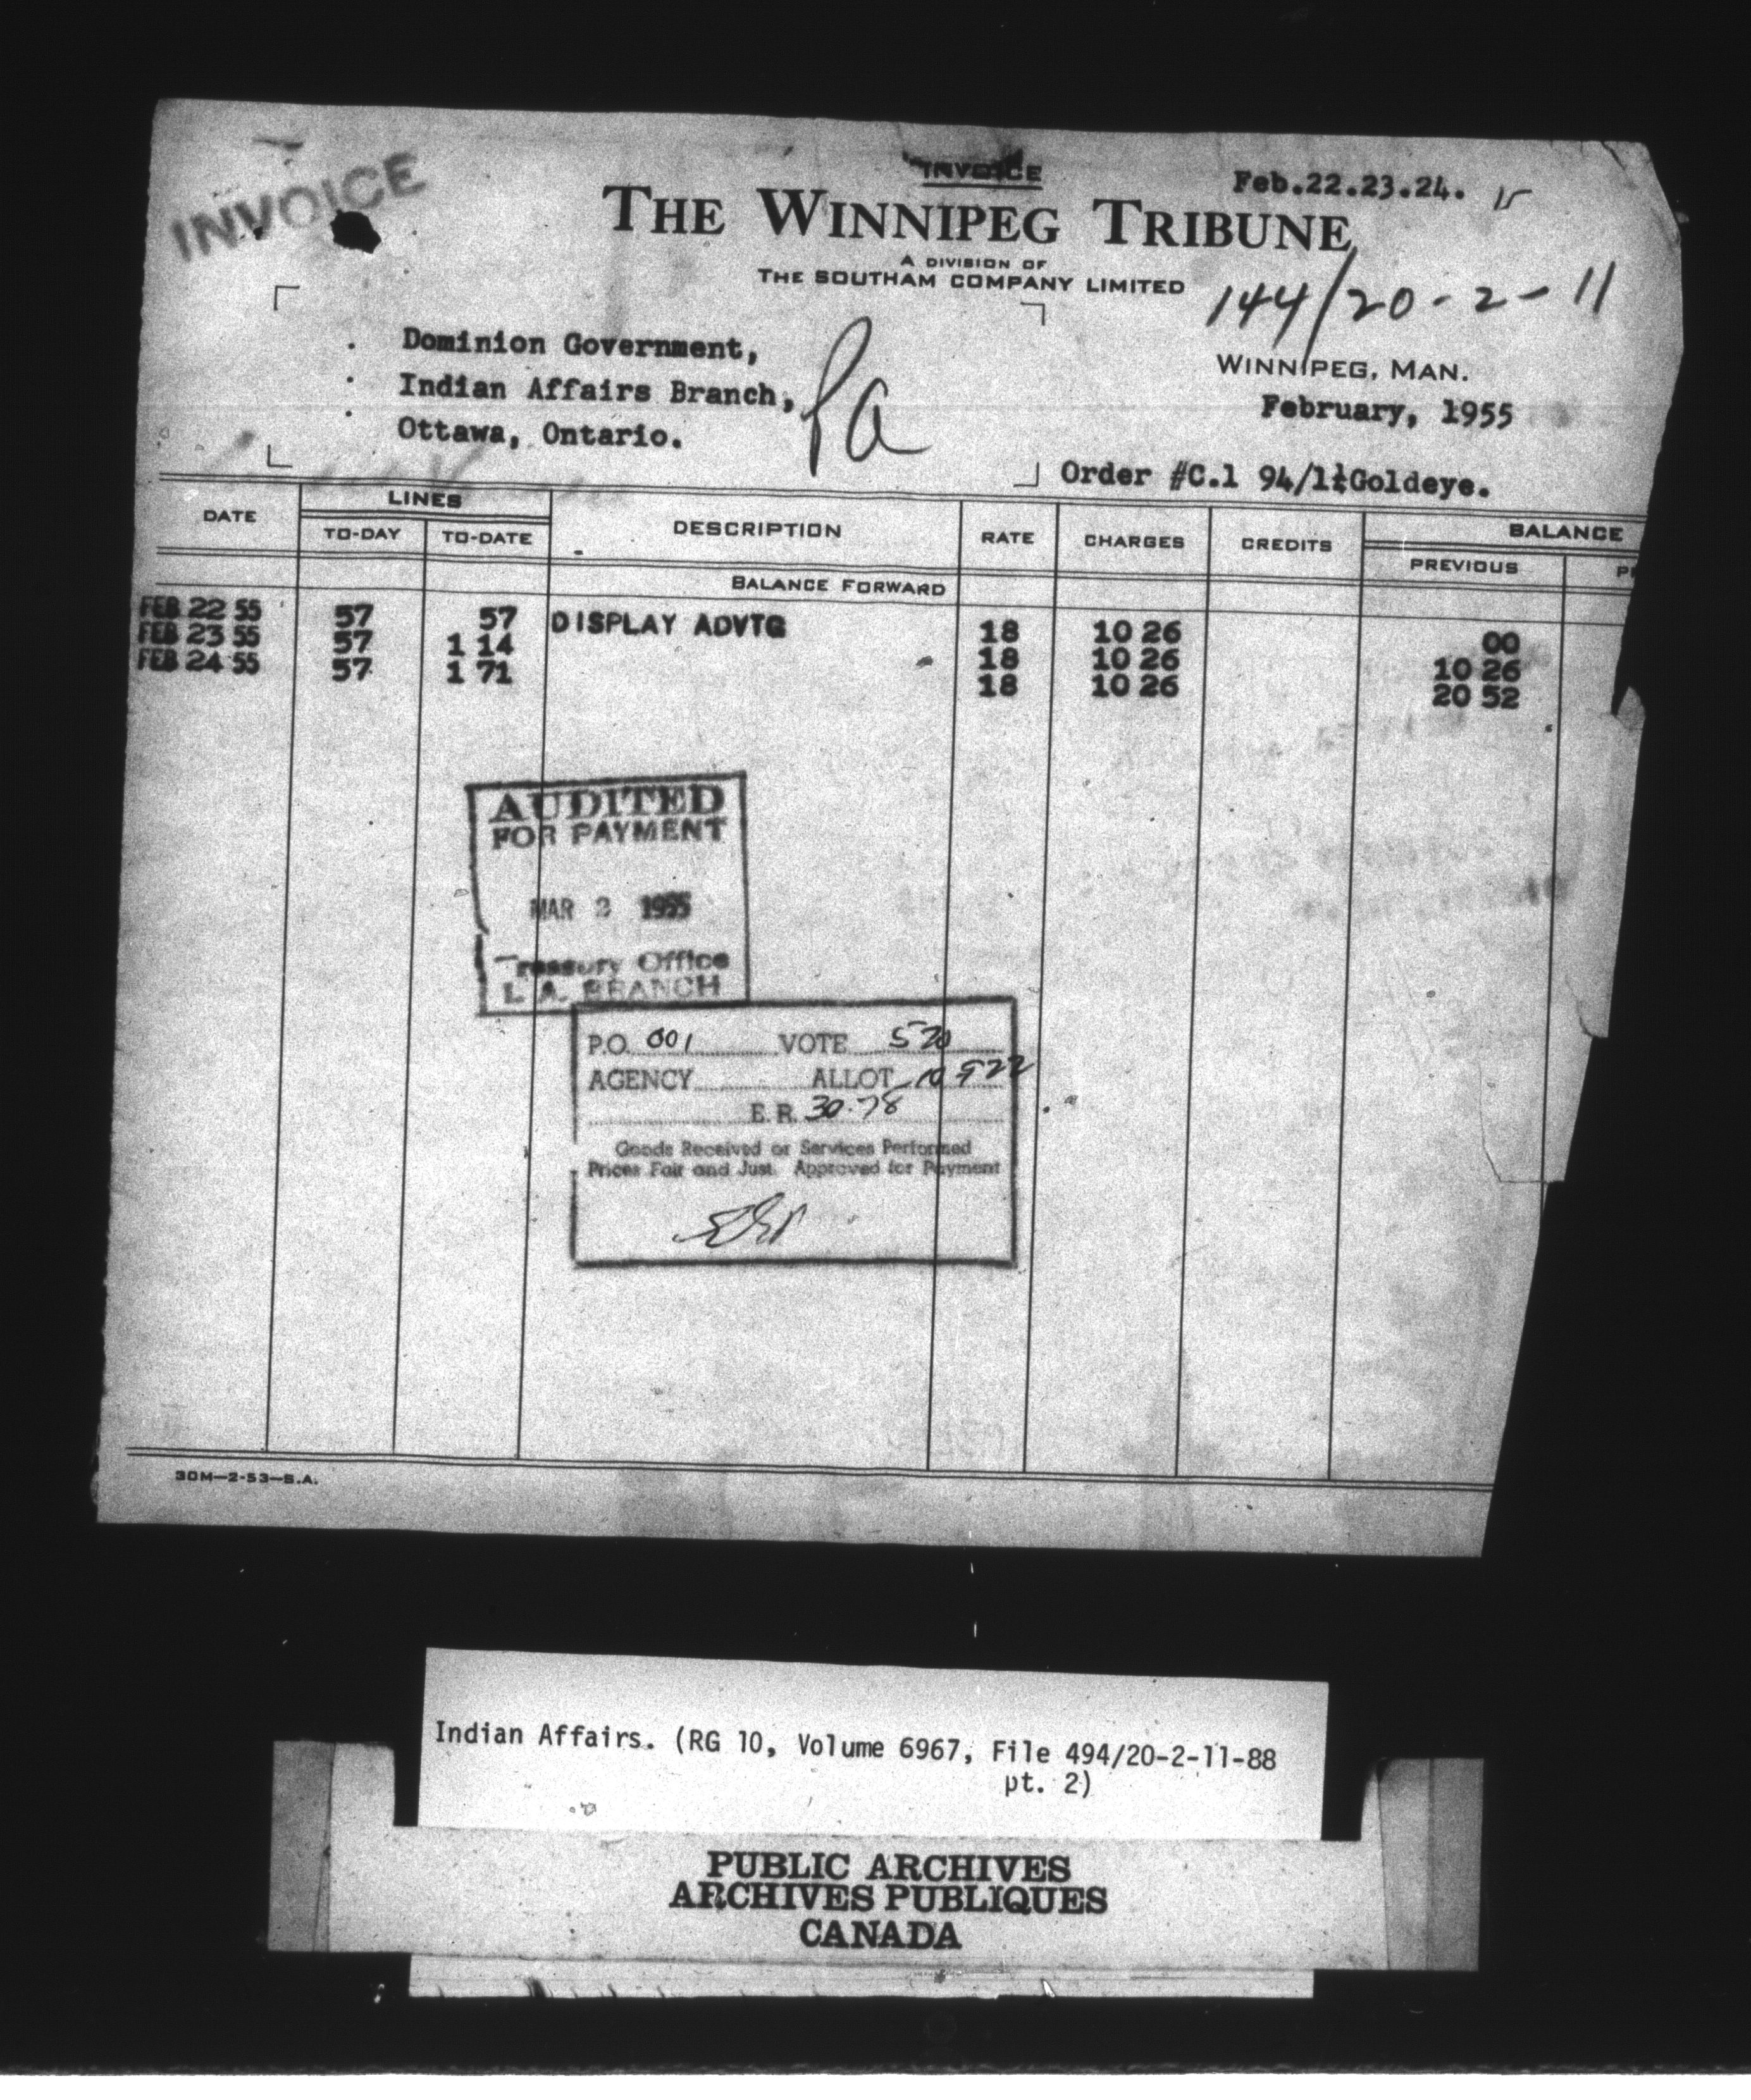 INVOICE
INVOICE
Feb.22.23.24.
THE WINNIPEG TRIBUNE
A DIVISION OF
THE SOUTHAM COMPANY LIMITED
144/20-2-11
Dominion Government,
Indian Affairs Branch,
Ottawa, Ontario.
Pa
WINNIPEG, MAN.
February, 1955
Order #C.1 94/1 Goldeye.
DATE LINES DESCRIPTION RATE CHARGES CREDITS BALANCE
TO-DAY TO-DATE PREVIOUS
BALANCE FORWARD
FEB 22 55 57 57 DISPLAY ADVTG 18 10 26 00
FEB 23 55 57 1 14 18 10 26 10 26
FEB 24 55 57 1 71 18 10 26 20 52
AUDITED
FOR PAYMENT
MAR 1955
Treasury Office
I. A. BRANCH
P.O. 001 VOTE 520
AGENCY ALLOT 10 922
E.R. 30.78
Goods Received or Services Performed
Prices Fair and Just. Approved for Payment
30M—2-53—S.A.
Indian Affairs. (RG 10, Volume 6967, File 494/20-2-11-88
pt. 2)
PUBLIC ARCHIVES
ARCHIVES PUBLIQUES
CANADA